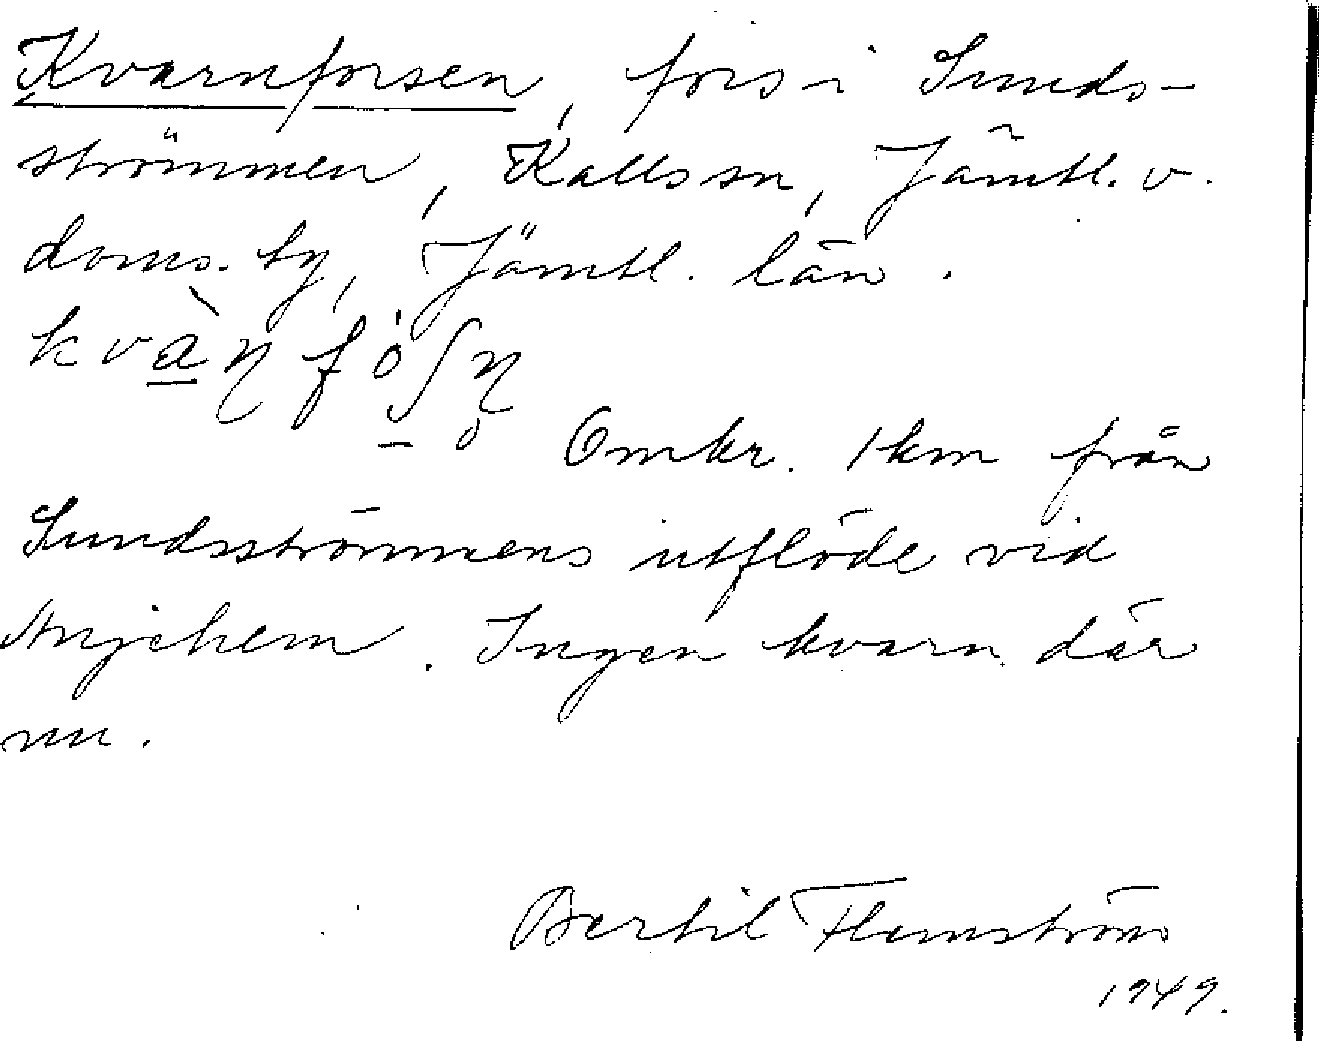 Kvarnforsen, fors i Sunds-
strömmen, Kalls sn, Jämtl. v.
doms. by, Jämtl. län.
kvàɳfóʃɳ̥
Omkr. 1 km från
Sundsströmmens utflöde vid
Anjehem. Ingen kvarn där
nu.
Bertil Flemström
1949.